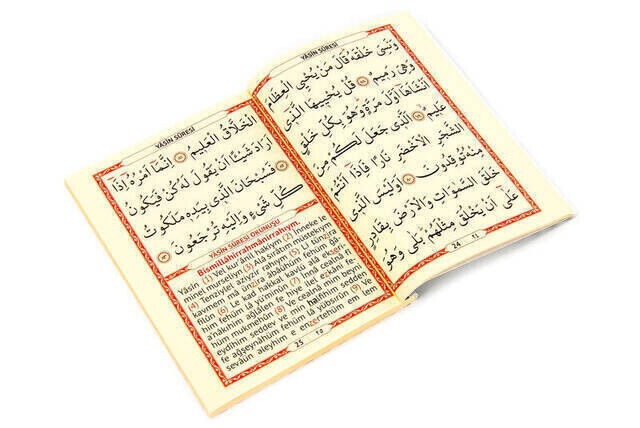 YÂSÎN SÛRESİ
وَنَسِىَ خَلْقَهُ قَالَ مَنْ يُحْيِى الْعِظَامَ
وَهِىَ رَمِيمٌ ﴿٧٨﴾ قُلْ يُحْيِيهَا الَّذِى
اَنْشَاَهَا اَوَّلَ مَرَّةٍ وَهُوَ بِكُلِّ خَلْقٍ
عَلِيمٌ ﴿٧٩﴾ اَلَّذِى جَعَلَ لَكُمْ مِنَ
الشَّجَرِ الْاَخْضَرِ نَارًا فَاِذَا اَنْتُمْ
مِنْهُ تُوقِدُونَ ﴿٨٠﴾ اَوَلَيْسَ الَّذِى
خَلَقَ السَّمٰوَاتِ وَالْاَرْضَ بِقَادِرٍ
عَلٰى اَنْ يَخْلُقَ مِثْلَهُمْ بَلٰى وَهُوَ
24
YÂSÎN SÛRESİ
الْخَلَّاقُ الْعَلِيمُ ﴿٨١﴾ اِنَّمَا اَمْرُهُ اِذَا
اَرَادَ شَيْئًا اَنْ يَقُولَ لَهُ كُنْ فَيَكُونُ
﴿٨٢﴾ فَسُبْحَانَ الَّذِى بِيَدِهِ مَلَكُوتُ
كُلِّ شَىْءٍ وَاِلَيْهِ تُرْجَعُونَ ﴿٨٣﴾
YÂSÎN SÛRESİ OKUNUŞU
Bismillâhirrahmânirrahıym.
Yâsîn (1) Vel kur'ânil hakiym. (2) İnneke le
minel murseliyn (3) Alâ sırâtım müstekıym
(4) Tenziylel aziyzir rahıym (5) Li tünzira
kavmem mâ ünzira âbâühüm fehüm ğâ
filûn (6) Le kad hakkal kavlü alâ ekserihim
him fehüm lâ yü'minûn (7) İnnâ cealnâ fî
a'nâkıhim ağlâlen fe hiye ilel ezkâni fe-
hüm mukmehûn (8) Ve cealnâ mim beyni
eydîhim seddev ve min halfihim sedden
fe ağşeynâhüm fehüm lâ yübsırûn (9) Ve
sevâün aleyhim e enzertehüm em lem
25